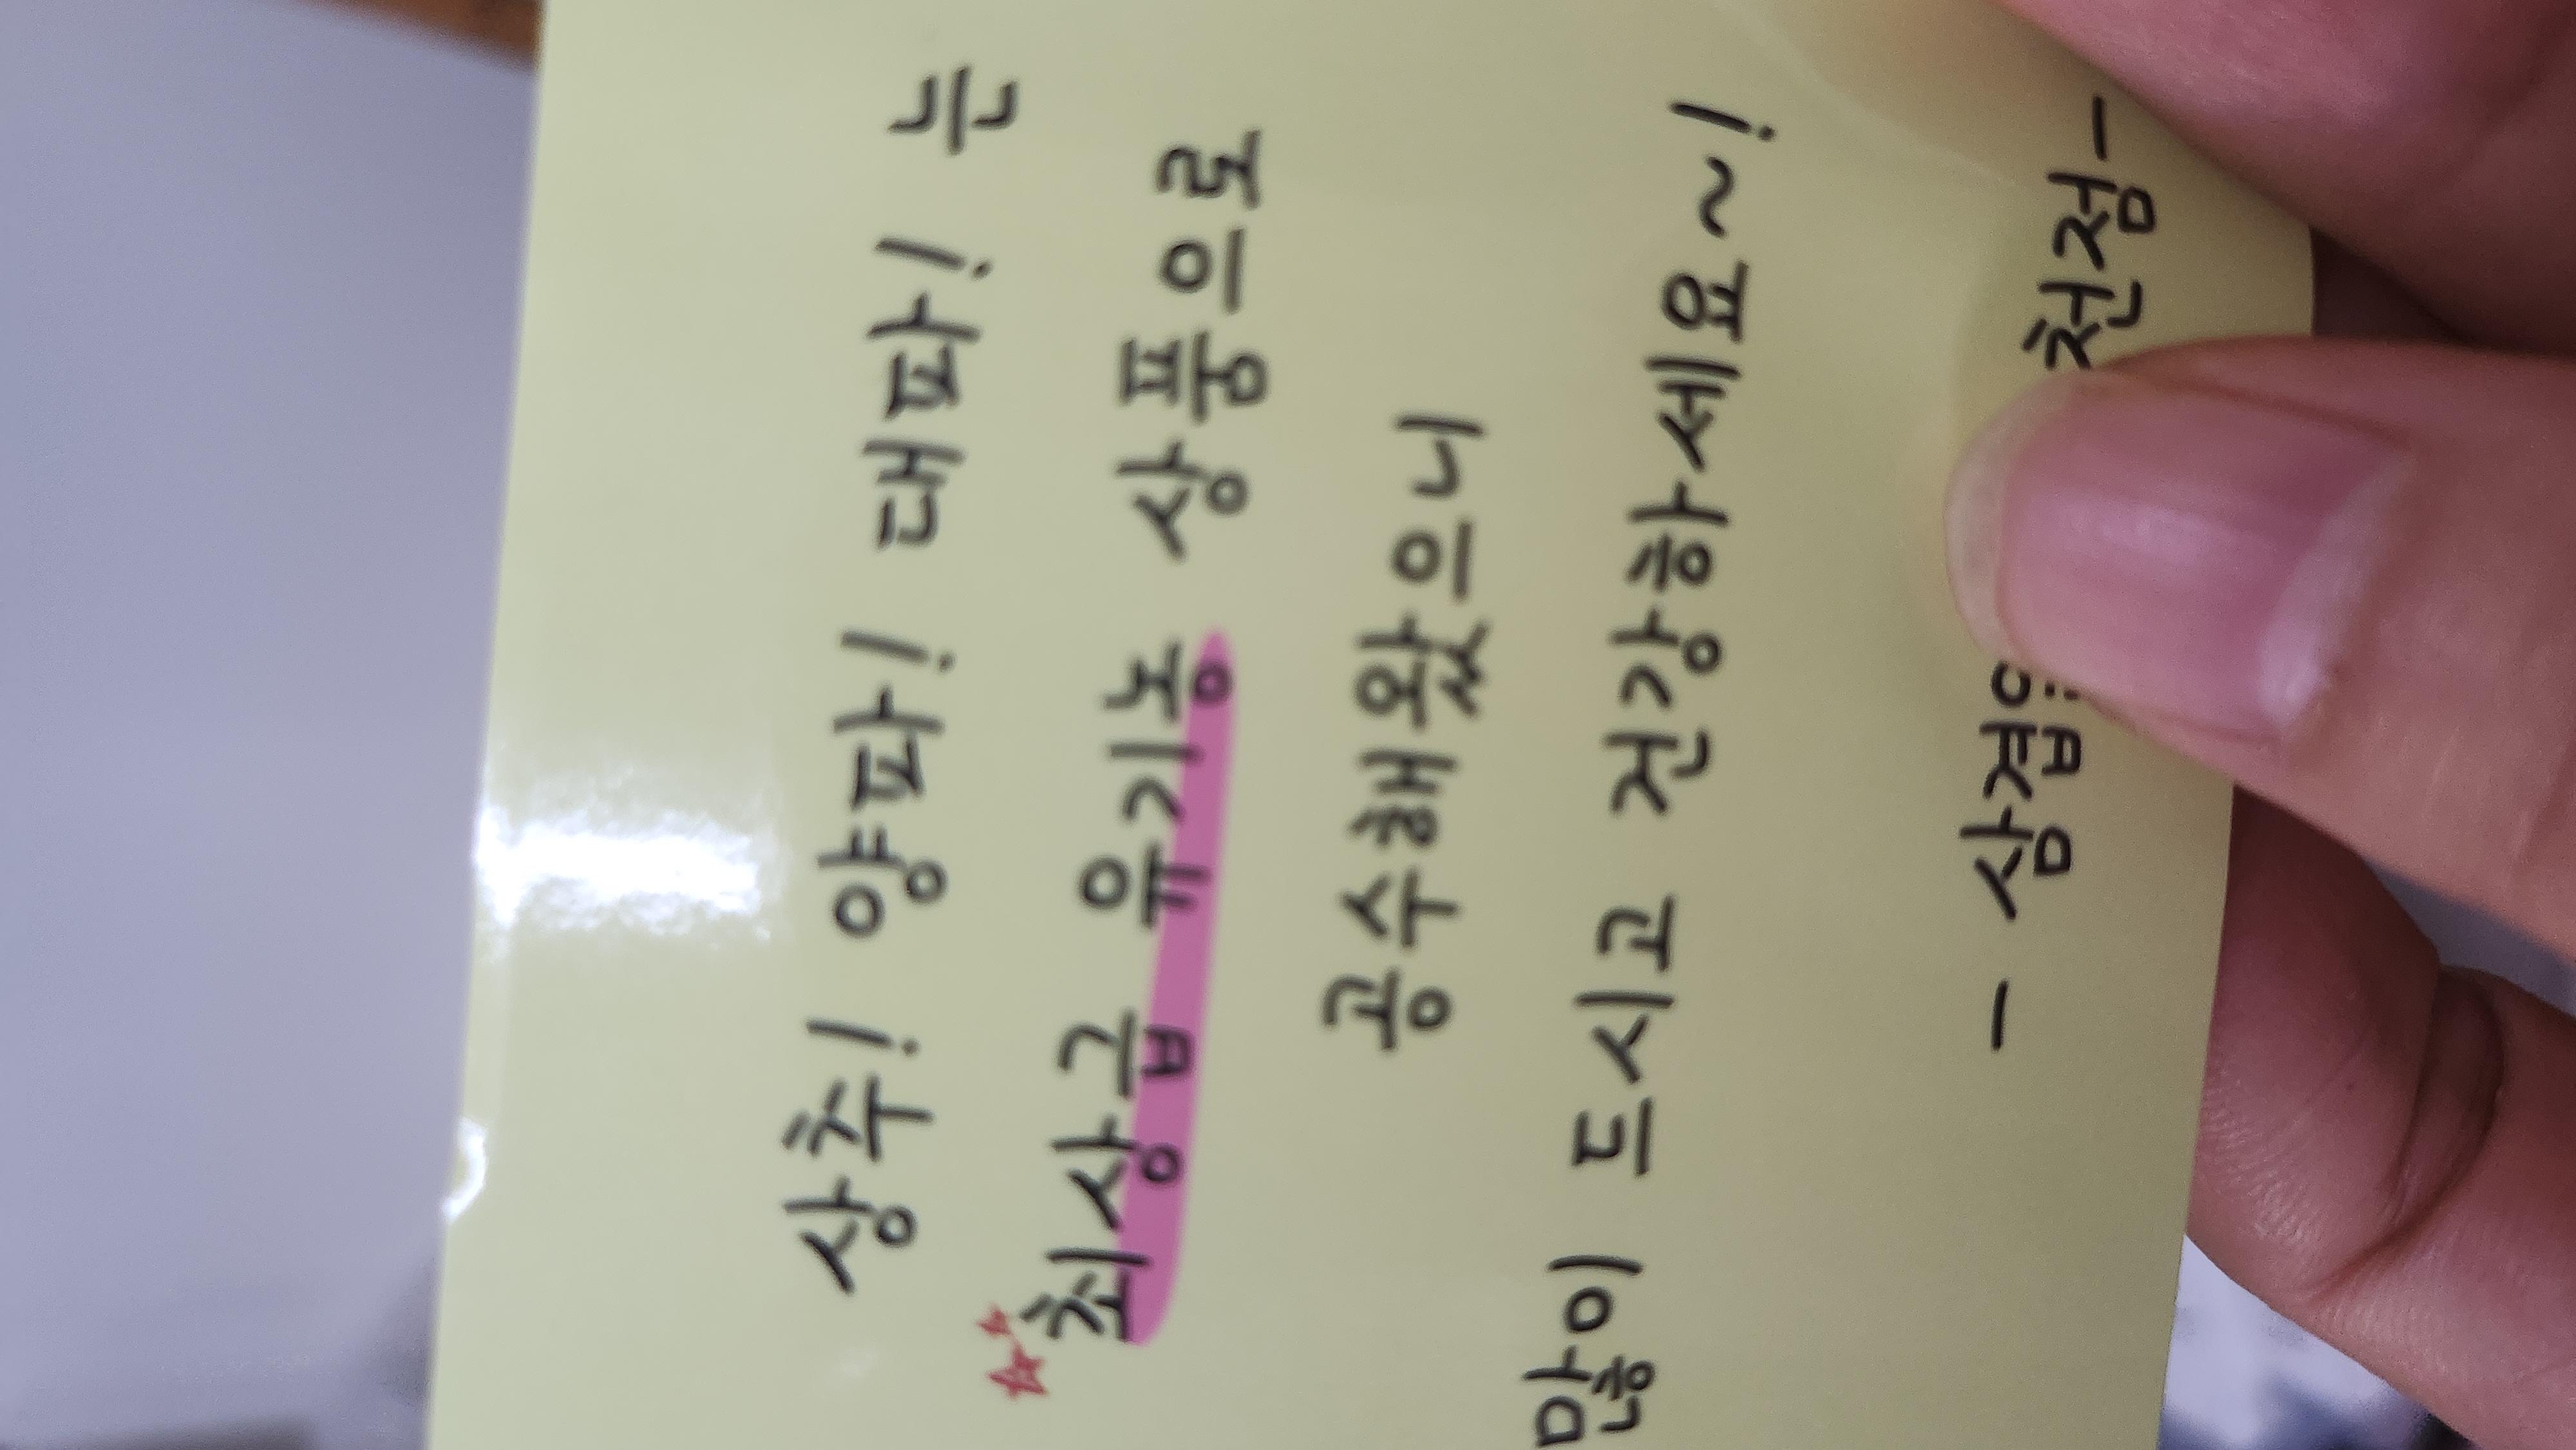 상추! 양파! 대파! 는
최상급 유기농 상품으로
공수해왔으니
많이 드시고 건강하세요~!
- 삼겹 천점-